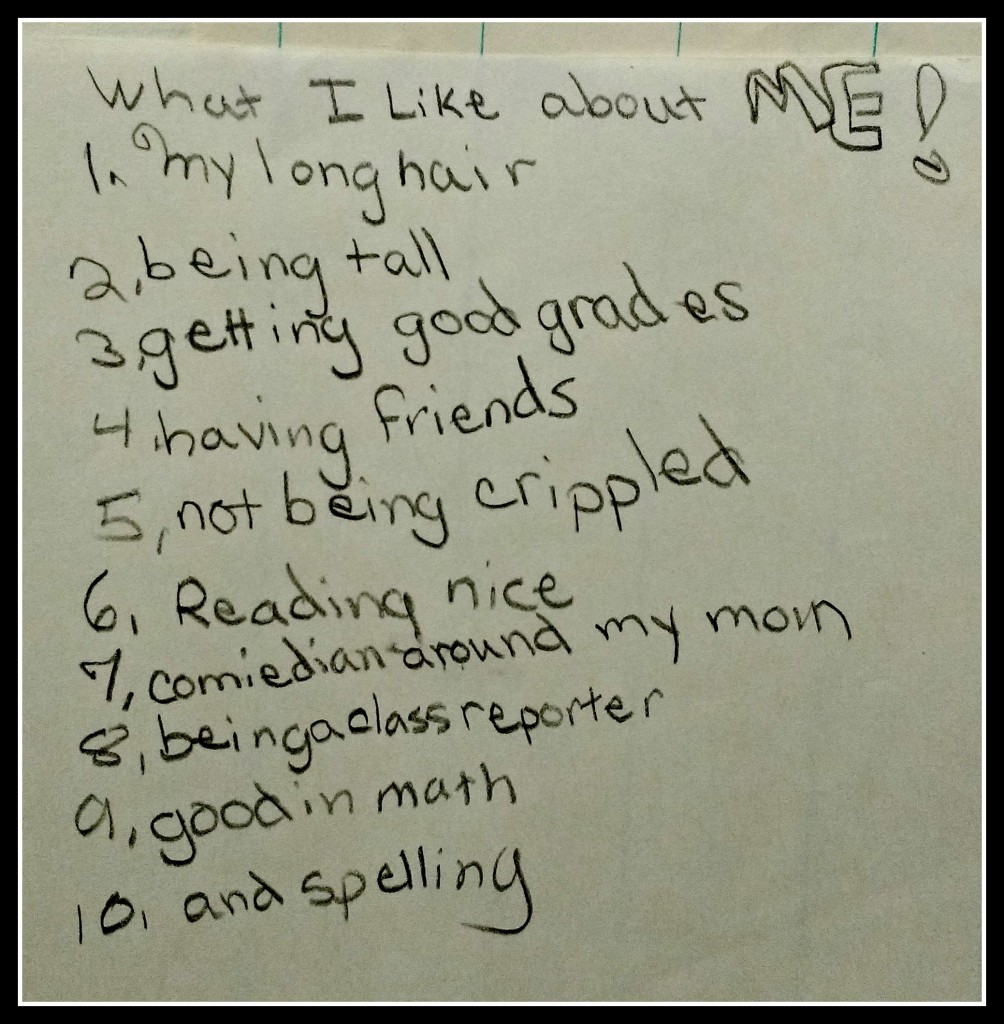 What I Like about ME!
1. my long hair
2. being tall
3. getting good grades
4. having friends
5, not being crippled
6, Reading nice
7, comiedian around my mom
8, being a class reporter
9, good in math
10, and spelling